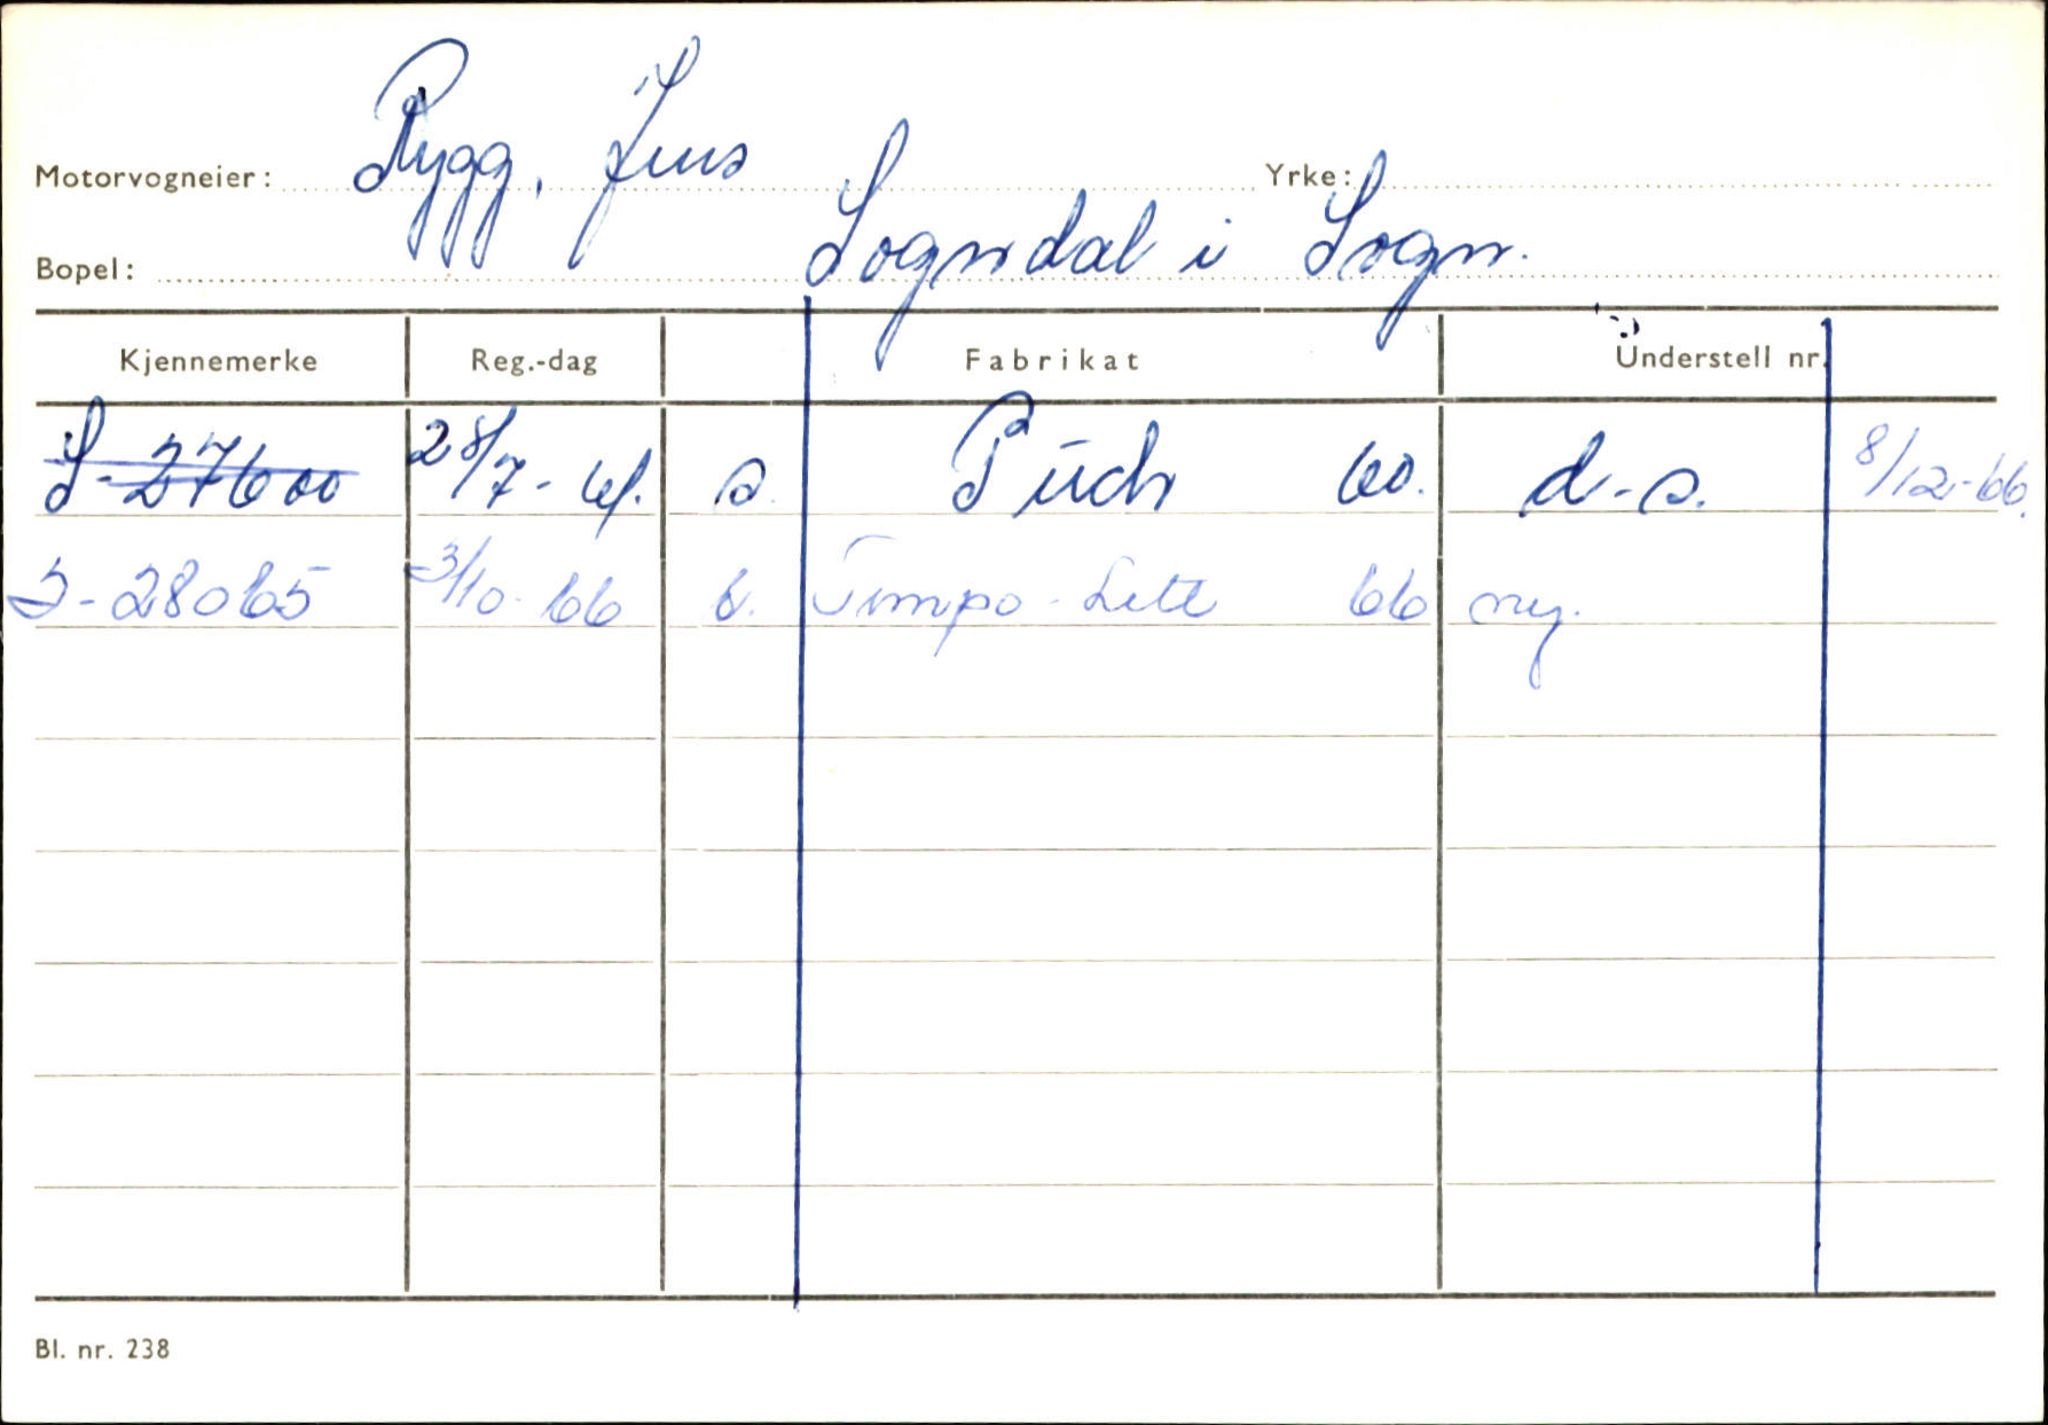 Motorvogneier: Rygg, Jens Yrke:
Bopel: Sogndal i Sogn.
Kjennemerke Reg.-dag Fabrikat Understell nr.
S-27600 28/7-61. s. Puch 60. d-s. 8/12-66.
S-28065 3/10-66 b. Tempo-Lett 66 ny.
Bl. nr. 238